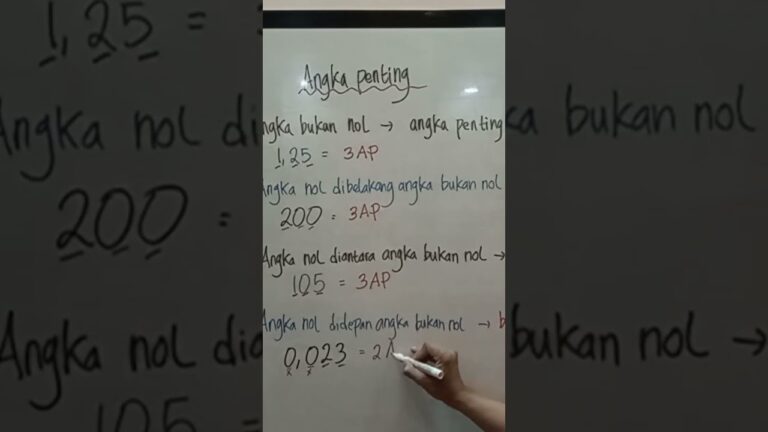 Angka penting
ngka bukan nol → angka penting
1,25 = 3AP
ngka nol dibelakang angka bukan nol
200 = 3AP
Angka nol diantara angka bukan nol →
105 = 3AP
Angka nol didepan angka bukan nol → b
0,023 = 2